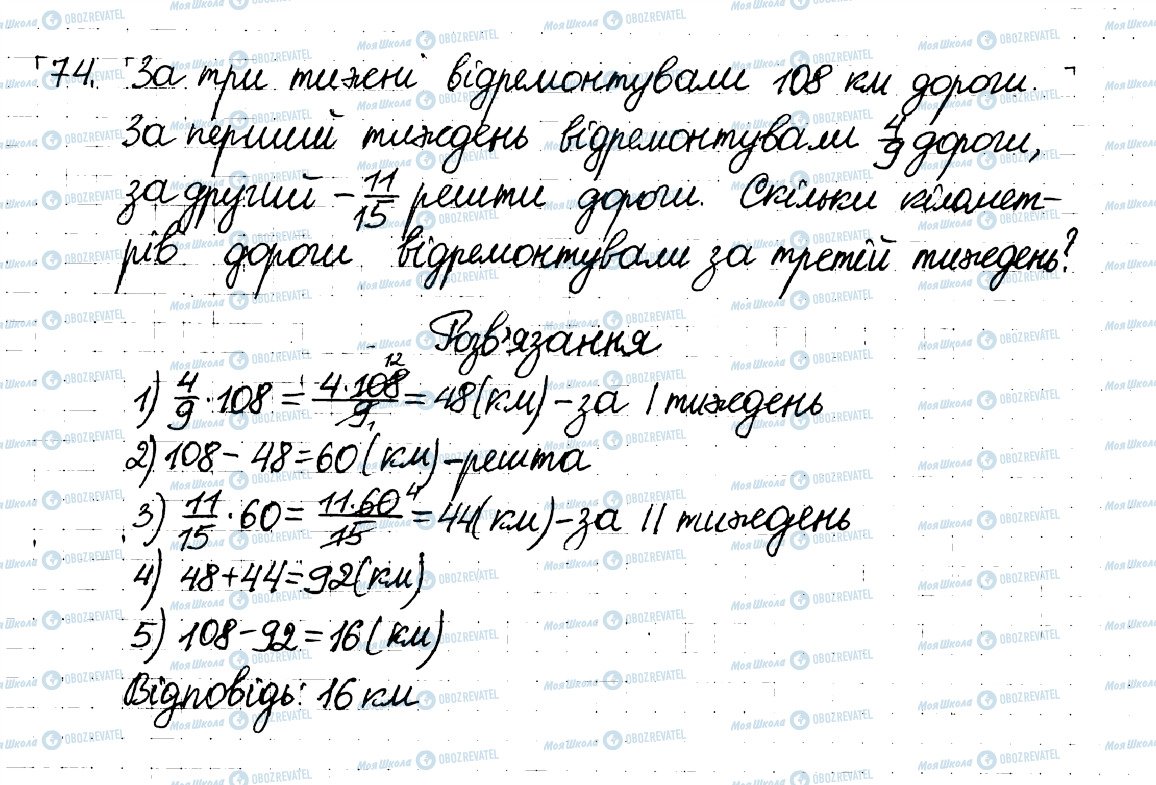 74. За три тижні відремонтували 108 км дороги.
За перший тиждень відремонтували 4/9 дороги,
за другий – 11/15 решти дороги. Скільки кіломет-
рів дороги відремонтували за третій тиждень?
Розв'язання
1) 4/9 · 108 = 4·108/9 = 48 (км) – за I тиждень
2) 108 – 48 = 60 (км) – решта
3) 11/15 · 60 = 11·60/15 = 44 (км) – за II тиждень
4) 48 + 44 = 92 (км)
5) 108 – 92 = 16 (км)
Відповідь: 16 км